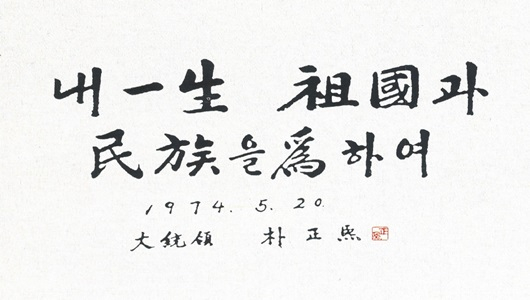 내 一生 祖國과
民族을 爲하여
1974. 5. 20.
大統領 朴正熙